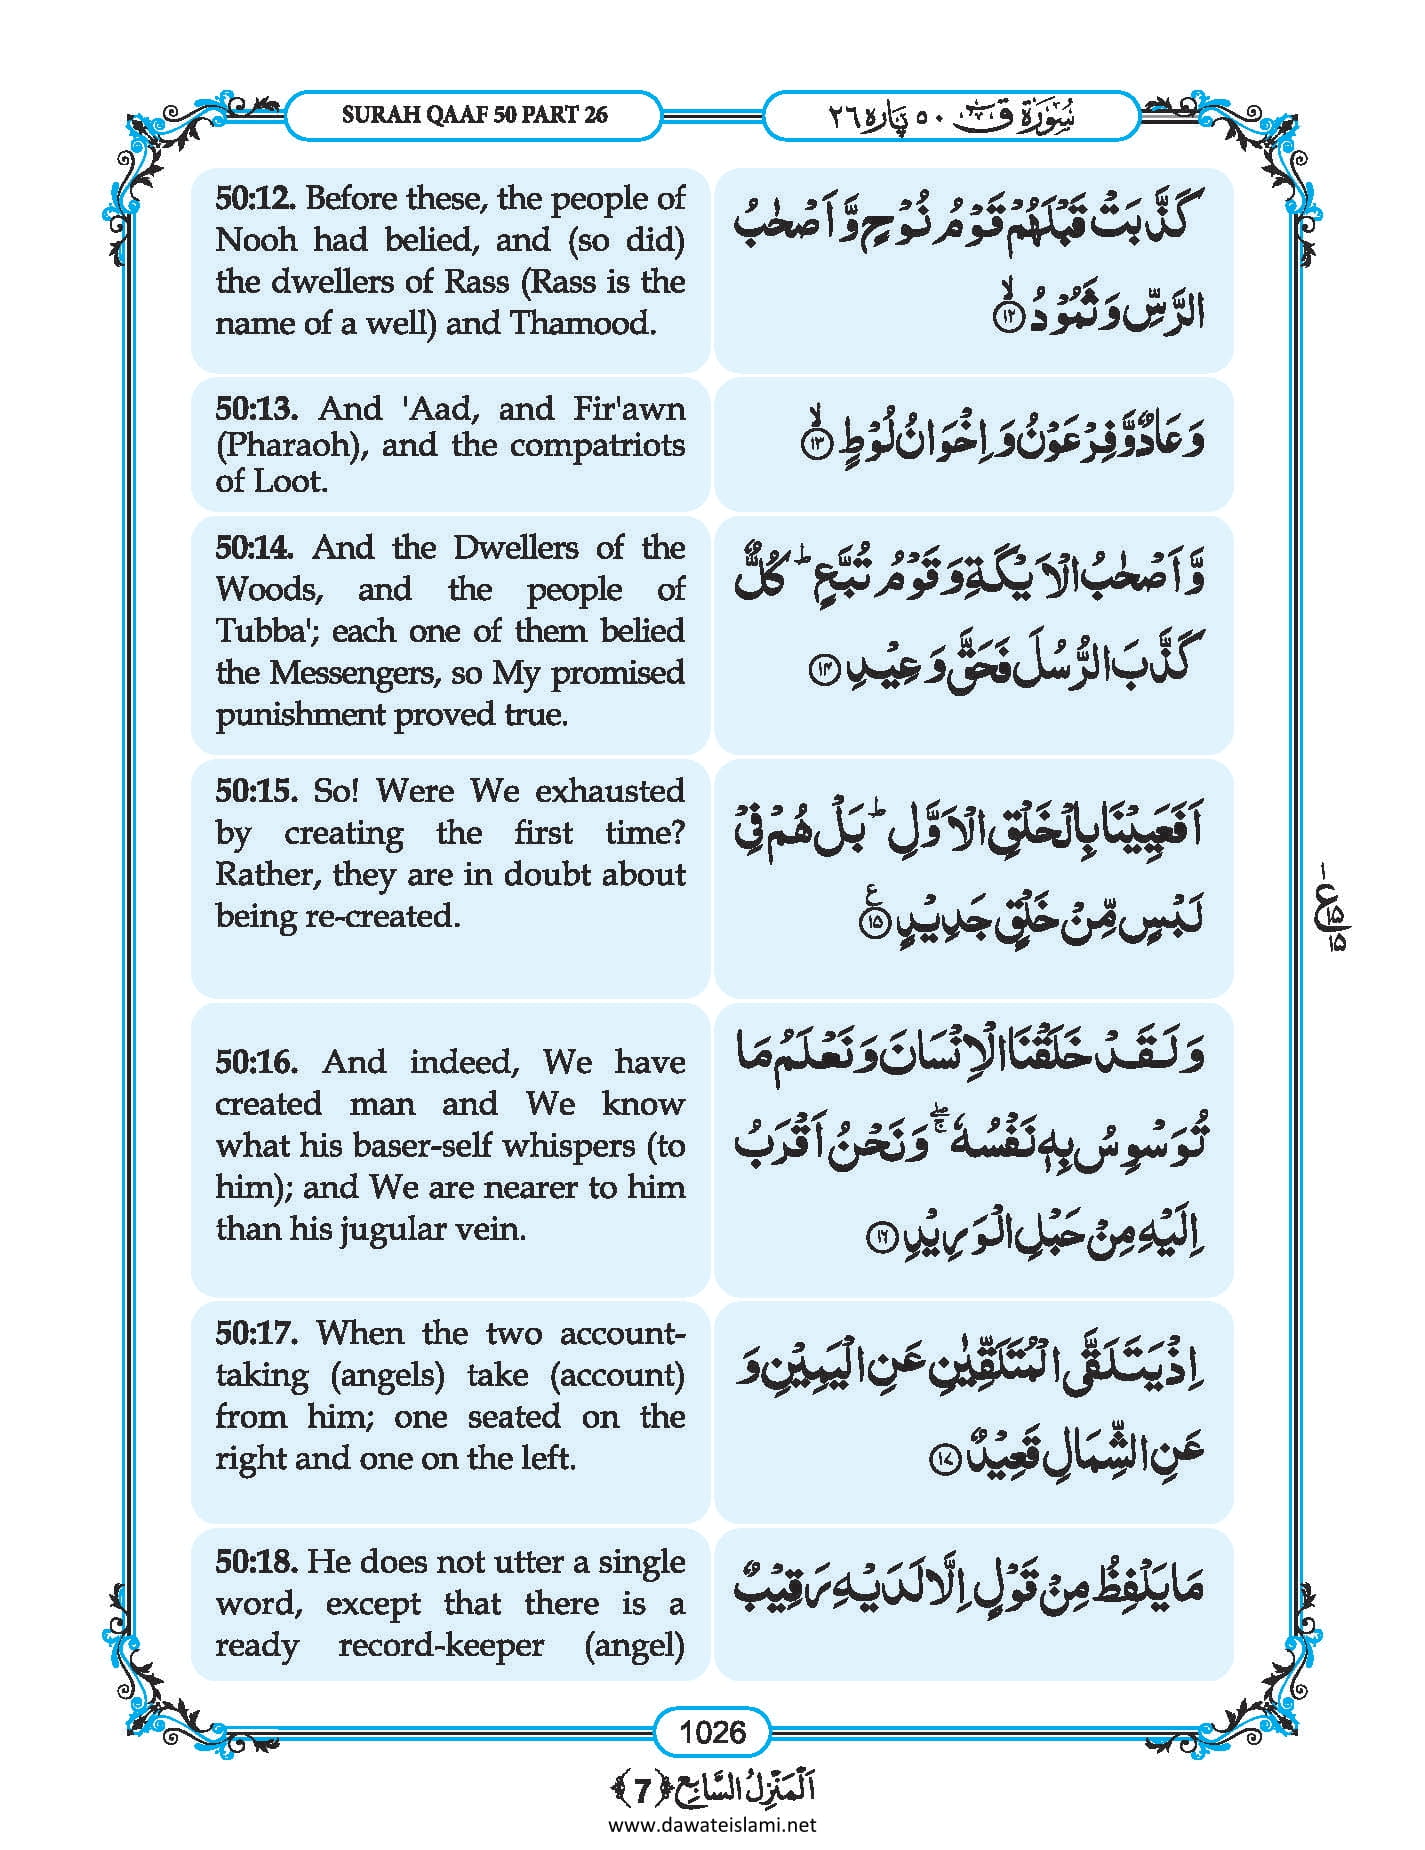 SURAH QAAF 50 PART 26
سُوْرَة قٓ ٥٠ پَارَه ٢٦
50:12. Before these, the people of
Nooh had belied, and (so did)
the dwellers of Rass (Rass is the
name of a well) and Thamood.
كَذَّبَتْ قَبْلَهُمْ قَوْمُ نُوْحٍ وَّ اَصْحٰبُ
الرَّسِّ وَ ثَمُوْدُۙ﴿۱۲﴾
50:13. And 'Aad, and Fir'awn
(Pharaoh), and the compatriots
of Loot.
وَ عَادٌ وَّ فِرْعَوْنُ وَ اِخْوَانُ لُوْطٍۙ﴿۱۳﴾
50:14. And the Dwellers of the
Woods, and the people of
Tubba'; each one of them belied
the Messengers, so My promised
punishment proved true.
وَّ اَصْحٰبُ الْاَیْكَةِ وَ قَوْمُ تُبَّعٍؕ كُلٌّ
كَذَّبَ الرُّسُلَ فَحَقَّ وَعِیْدِ﴿۱۴﴾
50:15. So! Were We exhausted
by creating the first time?
Rather, they are in doubt about
being re-created.
اَفَعَیِیْنَا بِالْخَلْقِ الْاَوَّلِؕ بَلْ هُمْ فِیْ
لَبْسٍ مِّنْ خَلْقٍ جَدِیْدٍ۠﴿۱۵﴾
ع
۱
۱۵
۱۵
50:16. And indeed, We have
created man and We know
what his baser-self whispers (to
him); and We are nearer to him
than his jugular vein.
وَ لَقَدْ خَلَقْنَا الْاِنْسَانَ وَ نَعْلَمُ مَا
تُوَسْوِسُ بِهٖ نَفْسُهٗ ۚۖ وَ نَحْنُ اَقْرَبُ
اِلَیْهِ مِنْ حَبْلِ الْوَرِیْدِ﴿۱۶﴾
50:17. When the two account-
taking (angels) take (account)
from him; one seated on the
right and one on the left.
اِذْ یَتَلَقَّی الْمُتَلَقِّیٰنِ عَنِ الْیَمِیْنِ وَ
عَنِ الشِّمَالِ قَعِیْدٌ﴿۱۷﴾
50:18. He does not utter a single
word, except that there is a
ready record-keeper (angel)
مَا یَلْفِظُ مِنْ قَوْلٍ اِلَّا لَدَیْهِ رَقِیْبٌ
1026
اَلْمَنْزِلُ السَّابِع ﴿7﴾
www.dawateislami.net